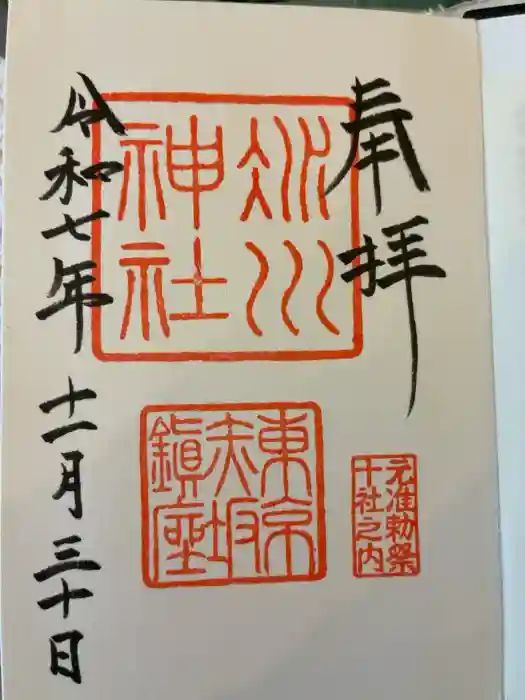 奉拝
氷川
神社
元准勅祭
十社之内
東京
赤坂
鎮座
令和七年十一月三十日